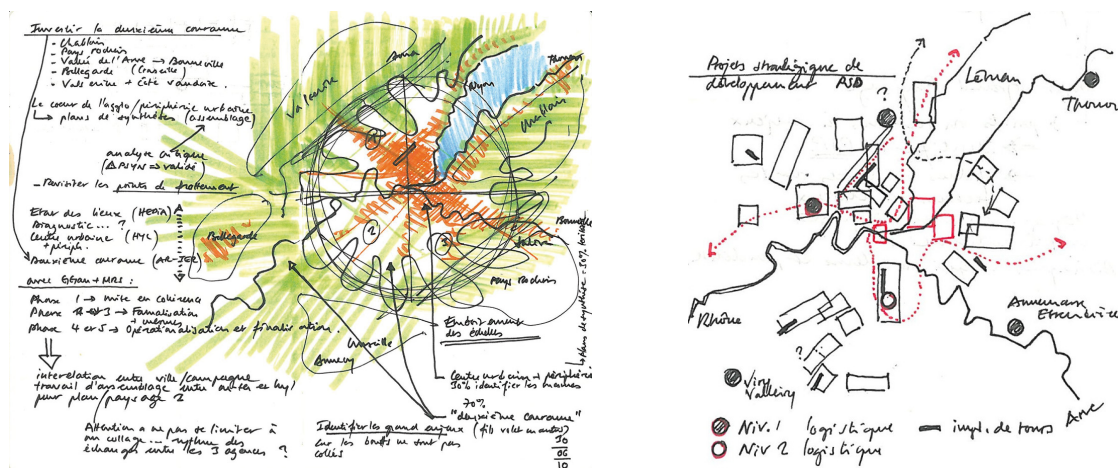 Investir la deuxième couronne
- Chablais
- Pays rochois
- Vallée de l'Arve → Bonneville
- Bellegarde
- Valserine + Côté vaudoise.
Le coeur de l'agglo/périphérie urbaine
↳ plans de synthèses (assemblage)
analyse critique
- Revisiter les points de frottement
Etat des lieux (HEPIA)
Diagnostic...?
Centre urbaine (HYL)
+ périph.
Deuxième couronne (AR-TER)
avec EGran + MRS :
Phase 1 → mise en cohérence
Phase 2 et 3 → Formalisation
+ mesures
Phase 4 et 5 → Opérationnalisation et finalisation.
interrelation entre ville/campagne
travail d'assemblage entre ar-ter et hyl
pour plan/paysage 2
Attention à ne pas se limiter à
un collage... rythme des
échanges entre les 3 agences ?
Valserine
Nyon
Thonon
Chablais
1
2
3
Bellegarde
Bonneville
Salève
Pays Rochois
Annecy
Emboitement
des échelles
Centre urbain + périphérie
30% identifier les
70%
"deuxième couronne"
Identifier les grand enjeux
sur les bouts ne sont pas
collés
30
06
10
Projets stratégique de
développement ASD
?
Léman
Thonon
Rhône
Annemasse
Arve
?
Viry
Valleiry
Niv. 1 logistique
Niv 2 logistique
impl. de tours